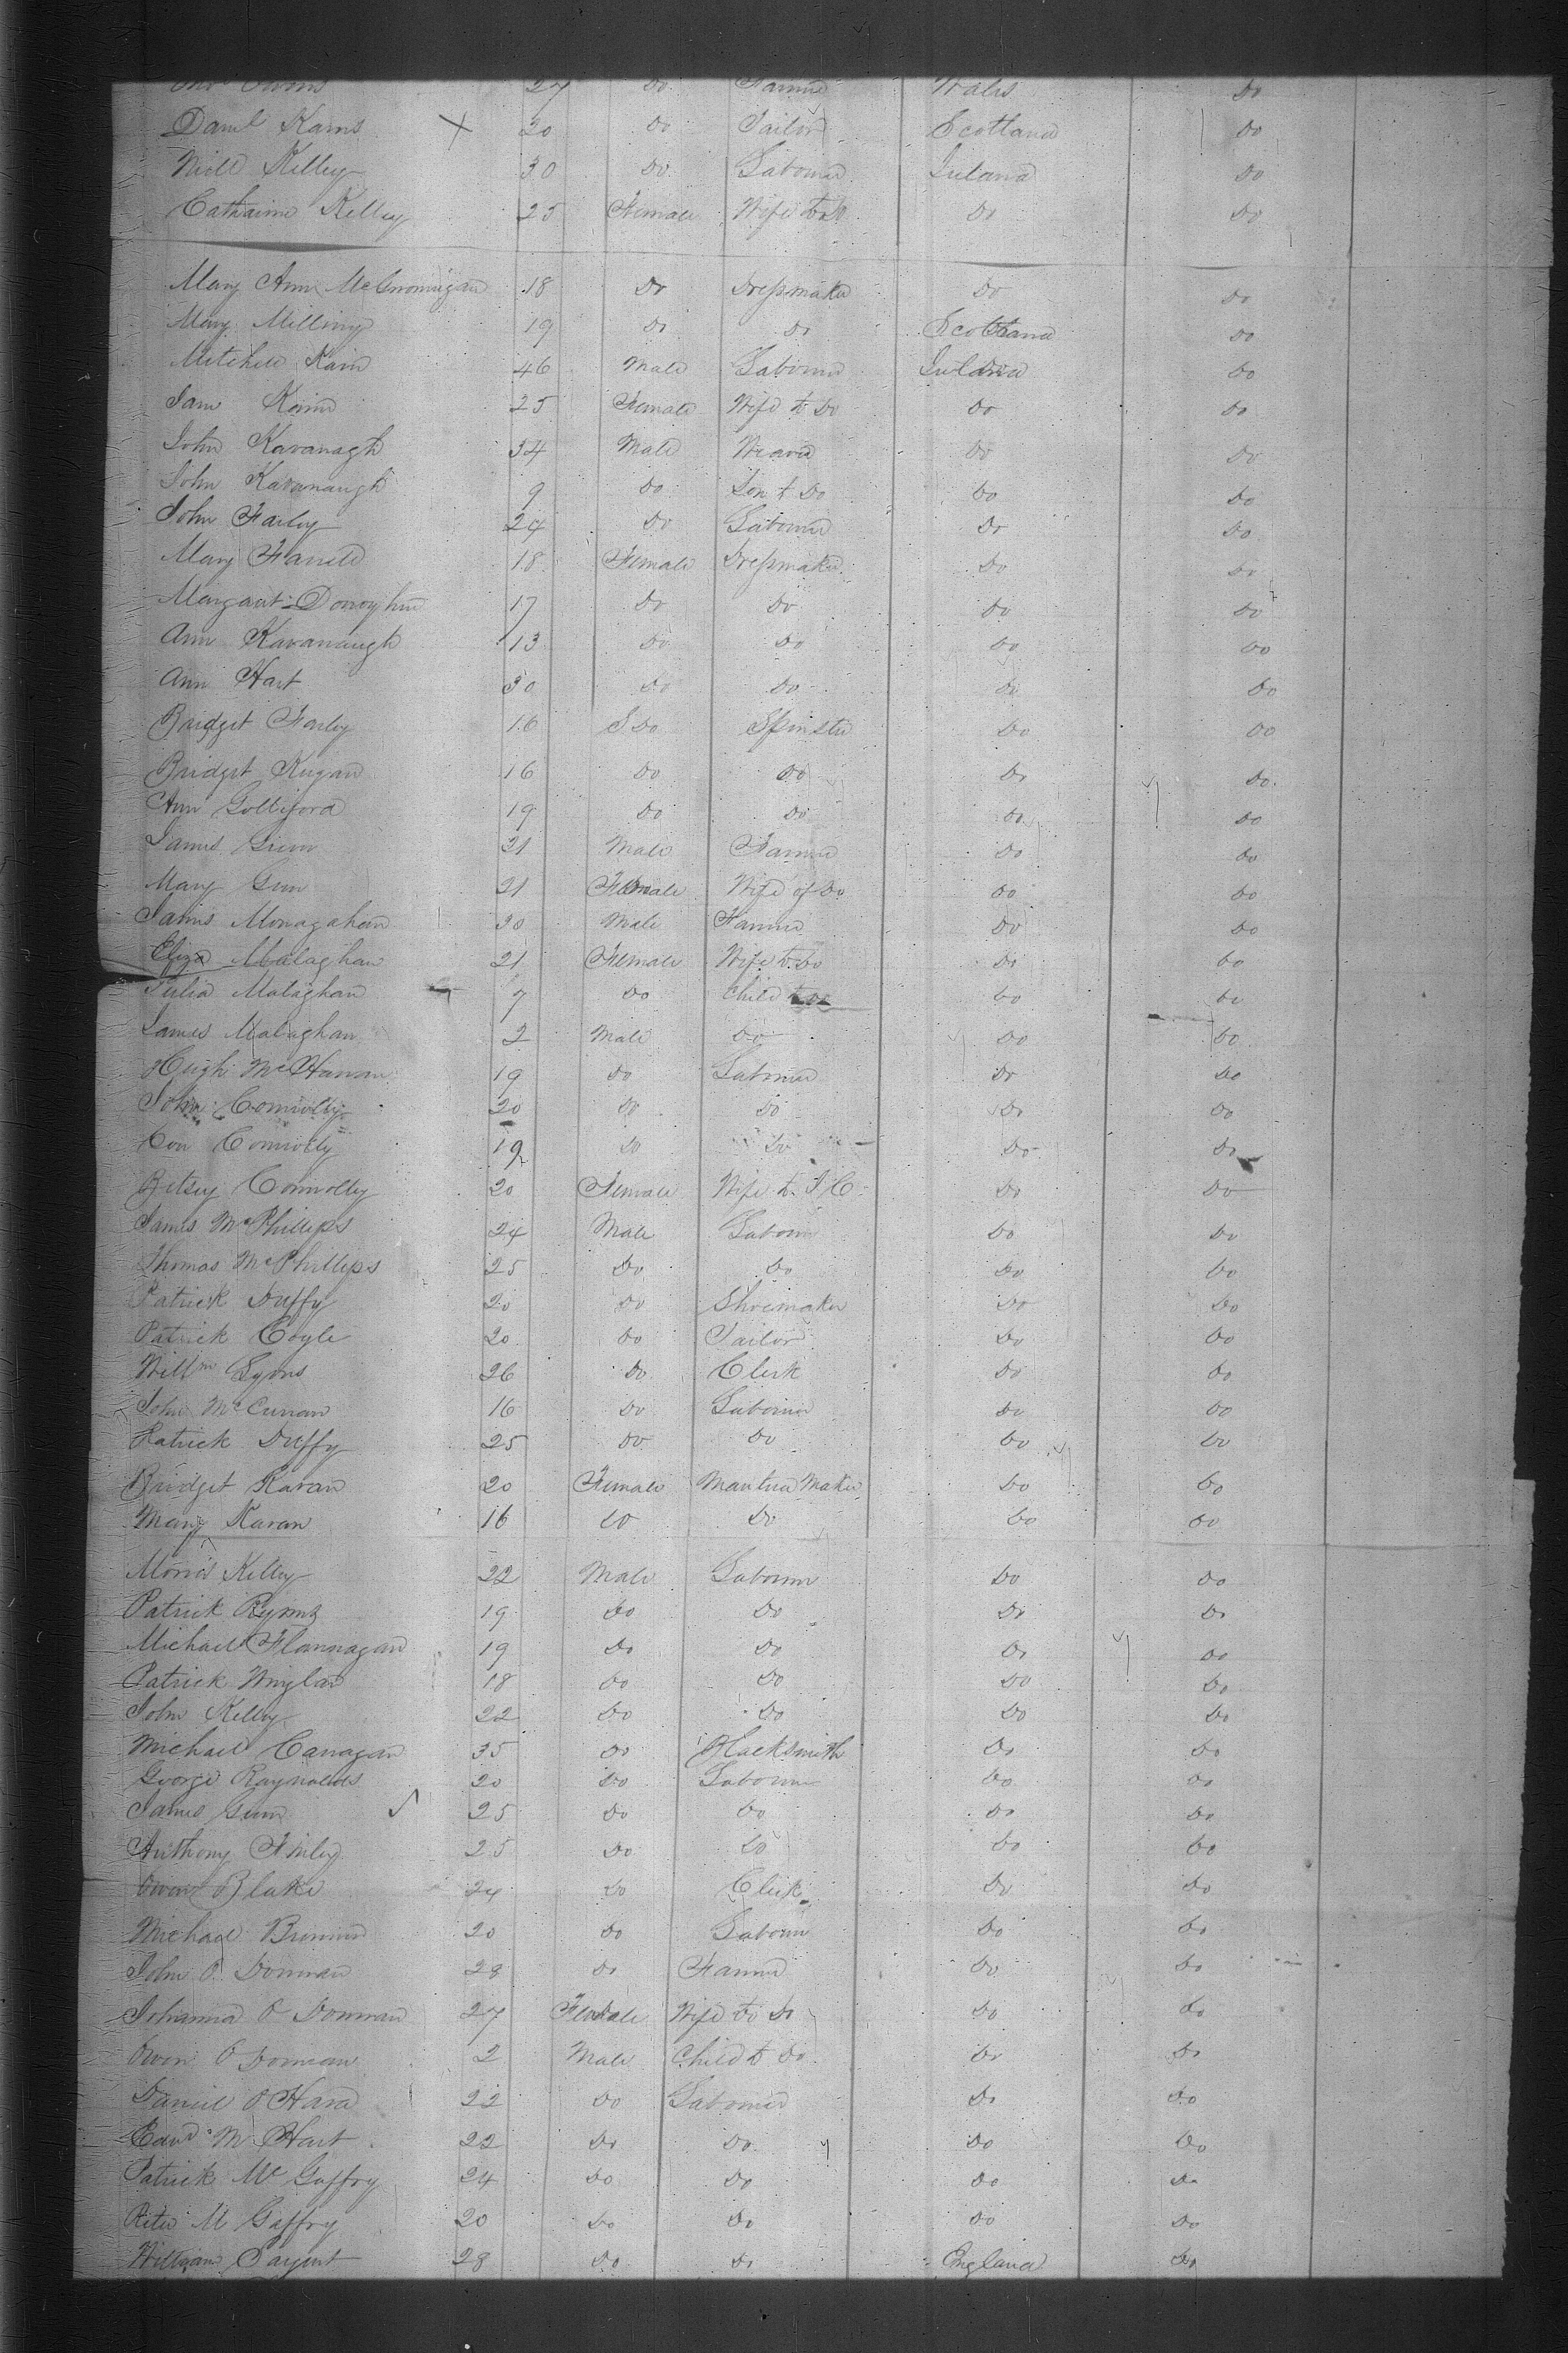 Owens 27 Do Farmer Wales Do
Danl Karns X 20 Do Tailor Scotland Do
Niell Kelley 30 Do Labourer Ireland Do
Catharine Kelley 25 Female Wife to Do Do Do
Mary Ann 18 Do Dressmaker Do Do
Mary 19 Do Do Scotland Do
Mitchell Kain 46 Male Labourer Ireland Do
Jane 25 Female Wife to Do Do Do
John Kavanagh 34 Male Weaver Do Do
John Kavanaugh 9 Do Son to Do Do Do
John Farley 24 Do Labourer Do Do
Mary 18 Female Dressmaker Do Do
Margaret 17 Do Do Do Do
Ann Kavanaugh 13 Do Do Do Do
Ann Hart 30 Do Do Do Do
Bridget Farley 16 Do Spinster Do Do
Bridget 16 Do Do Do Do
Ann 19 Do Do Do Do
James 21 Male Farmer Do Do
Mary 21 Female Wife of Do Do Do
James Monagahan 30 Male Farmer Do Do
Eliza Malaghan 21 Female Wife to Do Do Do
Julia Malaghan 7 Do Child to Do Do Do
James Malaghan 2 Male Do Do Do
Hugh 19 Do Labourer Do Do
John Connolly 20 Do Do Do Do
Connolly 19 Do Do Do Do
Betsey Connolly 20 Female Wife to J C Do Do
James McPhillips 24 Male Labourer Do Do
Thomas McPhillips 25 Do Do Do Do
Patrick Duffy 20 Do Shoemaker Do Do
Patrick Coyle 20 Do Tailor Do Do
Willm Lyons 26 Do Clerk Do Do
John McCurran 16 Do Labourer Do Do
Patrick Duffy 25 Do Do Do Do
Bridget Karan 20 Female Mantua Maker Do Do
Mary Karan 16 Do Do Do Do
Morris Kelley 22 Male Labourer Do Do
Patrick 19 Do Do Do Do
Michael Flannagan 19 Do Do Do Do
Patrick 18 Do Do Do Do
John Kelley 22 Do Do Do Do
Michael 35 Do Blacksmith Do Do
George Raynolds 20 Do Labourer Do Do
James 25 Do Do Do Do
Anthony 25 Do Do Do Do
Owen Blake 24 Do Clerk Do Do
Michael 20 Do Labourer Do Do
John O Dorman 28 Do Farmer Do Do
Johanna O Dorman 27 Female Wife to Do Do Do
Owen O Dorman 2 Male Child to Do Do Do
Daniel O Hara 22 Do Labourer Do Do
Edwd Mc Hart 22 Do Do Do Do
Patrick Mc Gaffry 24 Do Do Do Do
Peter M Gaffry 20 Do Do Do Do
William Sargent 28 Do Do England Do